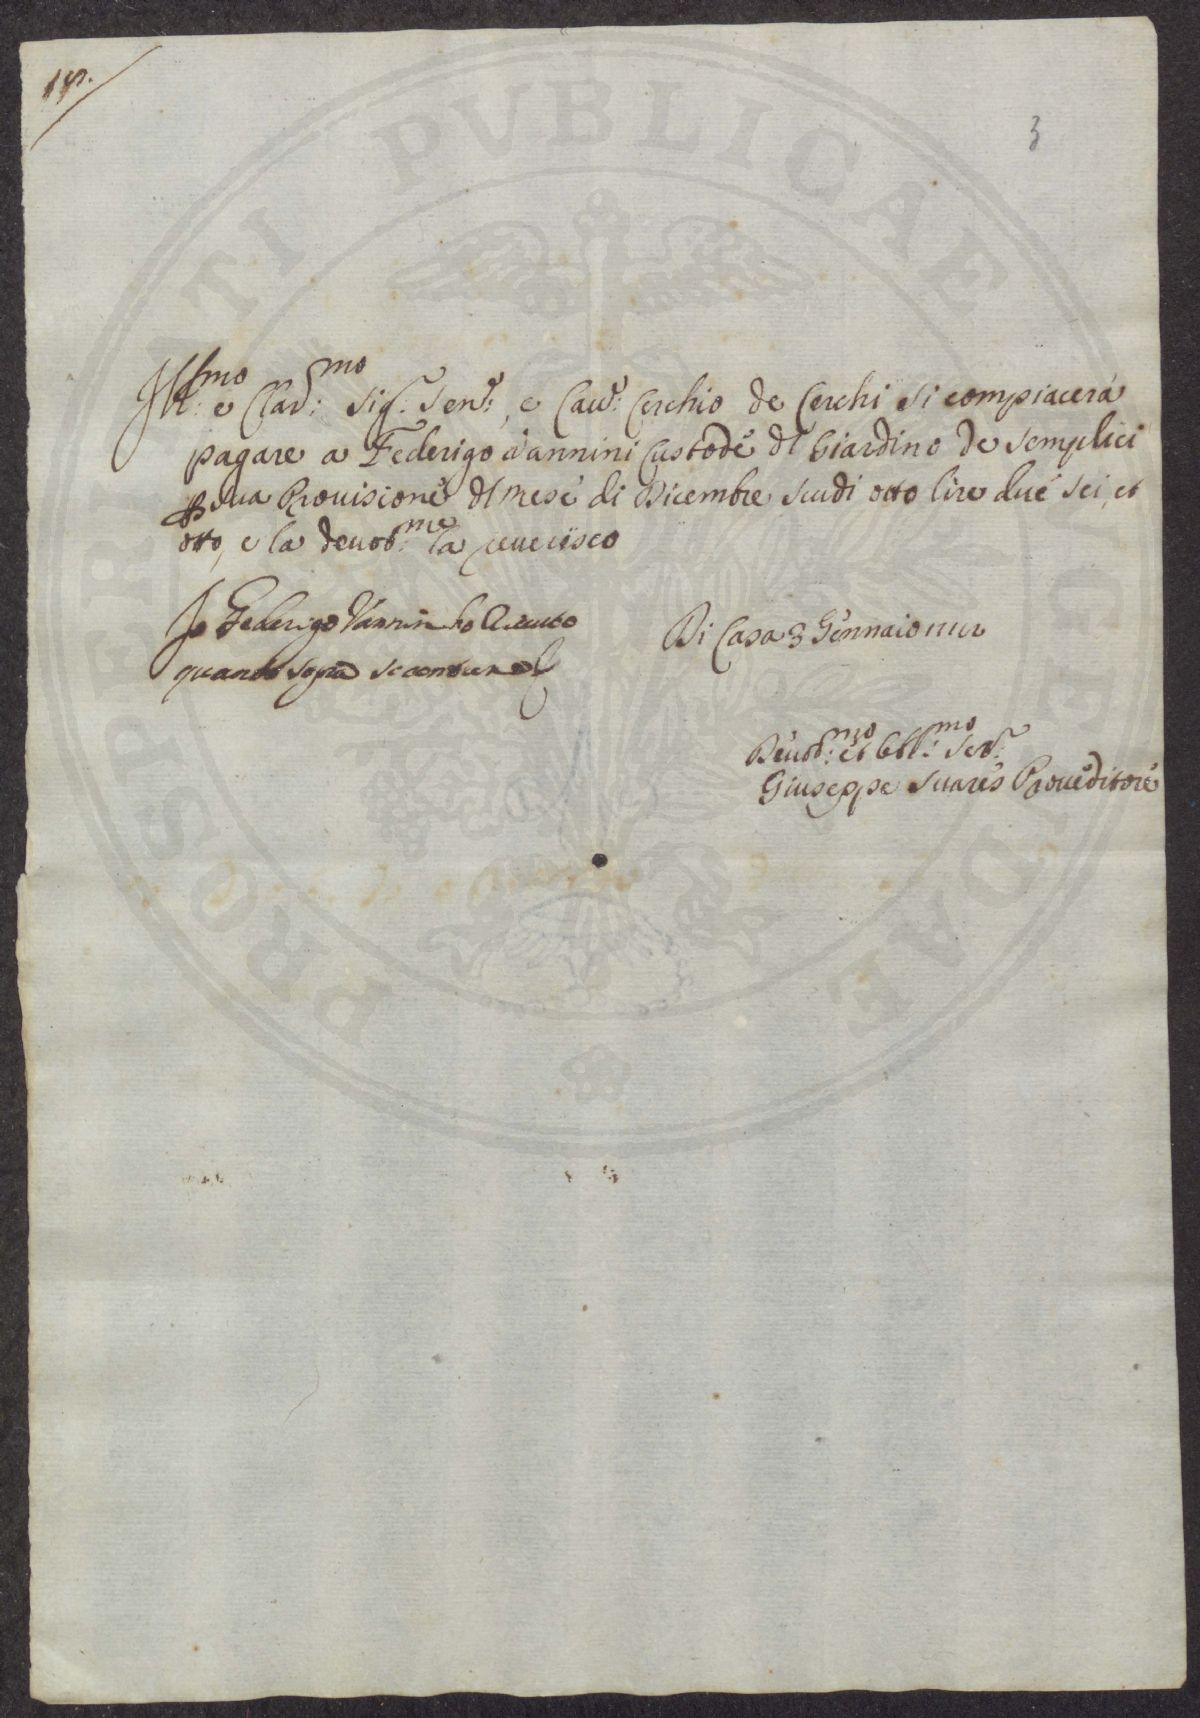 3
Ill:mo e Clar:mo Sig:r Sen:re, e Cav:re Cerchio de Cerchi si compiacerà
pagare a Federigo Vannini Custode dl Giardino de semplici
sua Provisione dl mese di Dicembre scudi otto lire due sei, et
otto, e la devot:me la reverisco
Io Federigo Vannini ho riceuto
quanto sopra si contiene
Di Casa 3 Gennaio
Devot:mo et Obl:mo Ser:re
Giuseppe Suares Proveditore
PROSPERITATI PVBLICAE